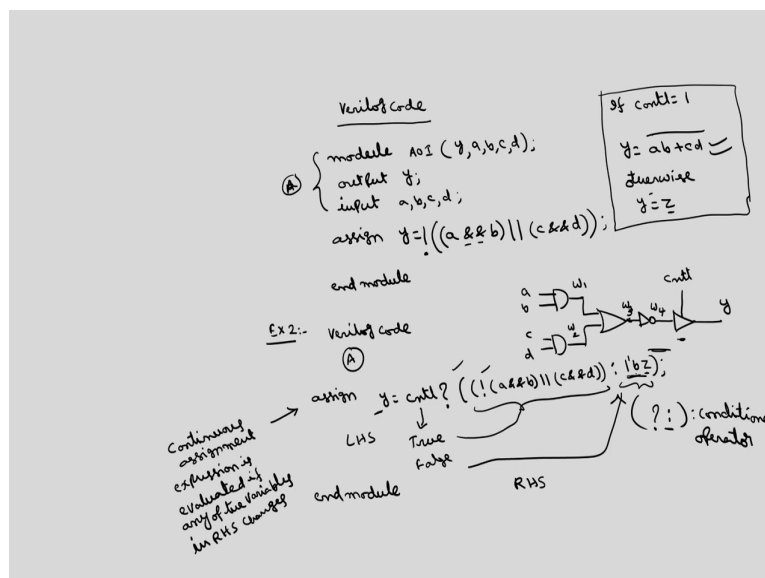 Verilog code
A
module AOI (y,a,b,c,d);
output y;
input a,b,c,d;
assign y=!((a && b)||(c&&d));
end module
If contl=1
y= ab+cd
otherwise
y=z
a
b
c
d
w1
w2
w3
w4
Cntl
y
Ex2:- Verilog code
A
assign y= cntl? ((!(a&&b)||(c&&d)) : 1'bz);
(?:): conditional
operator
LHS
True
False
RHS
Continuous
assignment
expression is
evaluated if
any of the variables
in RHS changes
end module